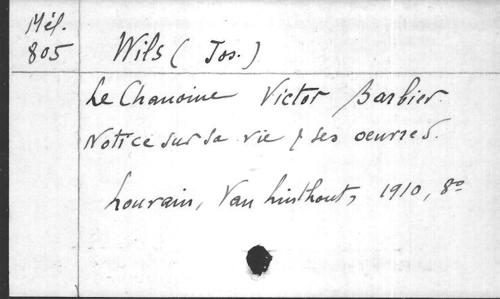 Mél.
805
Wils (Jos.)
Le Chanoine Victor Barbier.
Notice sur sa vie & ses oeuvres.
Louvain, Van Linthout, 1910, 8º